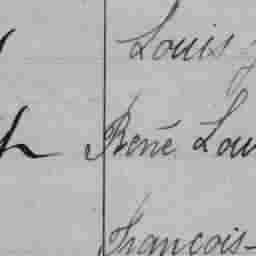 Louis
René Lou
François-